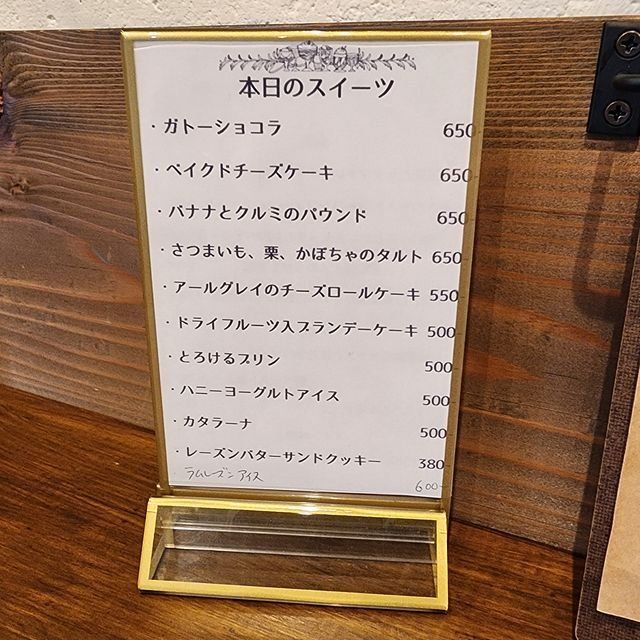 本日のスイーツ
・ガトーショコラ 650-
・ベイクドチーズケーキ 650-
・バナナとクルミのパウンド 650-
・さつまいも、栗、かぼちゃのタルト 650-
・アールグレイのチーズロールケーキ 550-
・ドライフルーツ入ブランデーケーキ 500-
・とろけるプリン 500-
・ハニーヨーグルトアイス 500-
・カタラーナ 500-
・レーズンバターサンドクッキー 380-
・ラムレーズンアイス 600-